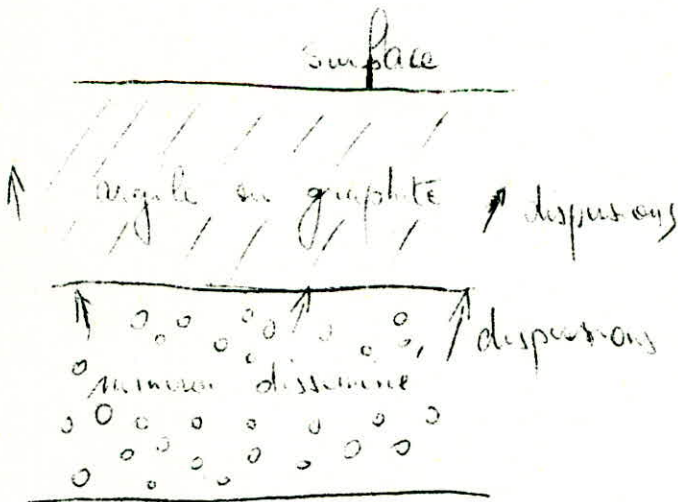 surface
argile ou graphite
dispersions
dispersions
minerai disséminé